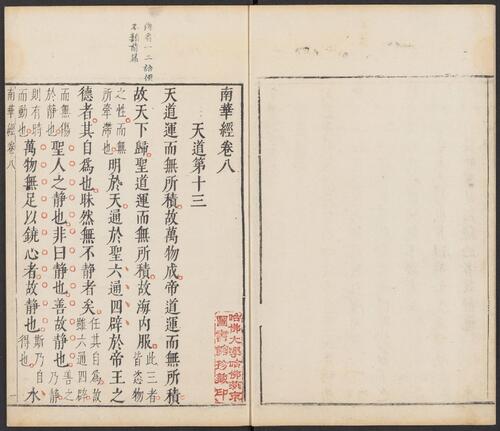 一二語便
不類前篇
南華經卷八
天道第十三
天道運而無所積故萬物成帝道運而無所積
故天下歸聖道運而無所積故海內服此三者皆恣物
之性而無所牽滯也明於天通於聖六通四辟於帝王之
德者其自為也昧然無不靜者矣任其自為故雖六通四辟
而無傷於靜也聖人之靜也非曰靜也善故靜也善之乃靜
則有時而動也萬物無足以鐃心者故靜也斯乃自得也水
南華經卷八
一
哈佛大學哈佛燕京
圖書館珍藏印